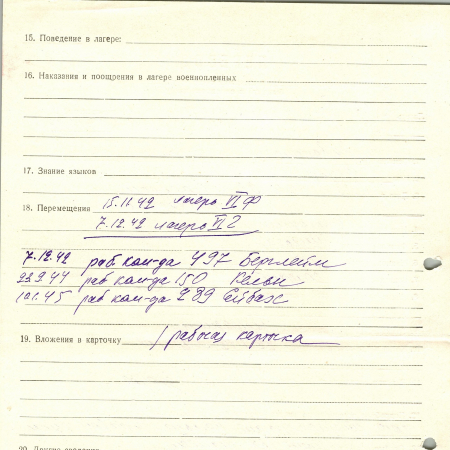 15. Поведение в лагере:
16. Наказания и поощрения в лагере военнопленных
17. Знание языков
18. Перемещения 15.11.42 лагерь VI Ф
7.12.42 лагерь VI Г
7.12.42 раб ком-да 497 Берглейм
23.9.44 раб ком-да 150 Кельн
10.1.45 раб ком-да 289 Ейбах
19. Вложения в карточку 1 рабочая карточка
20. Другие